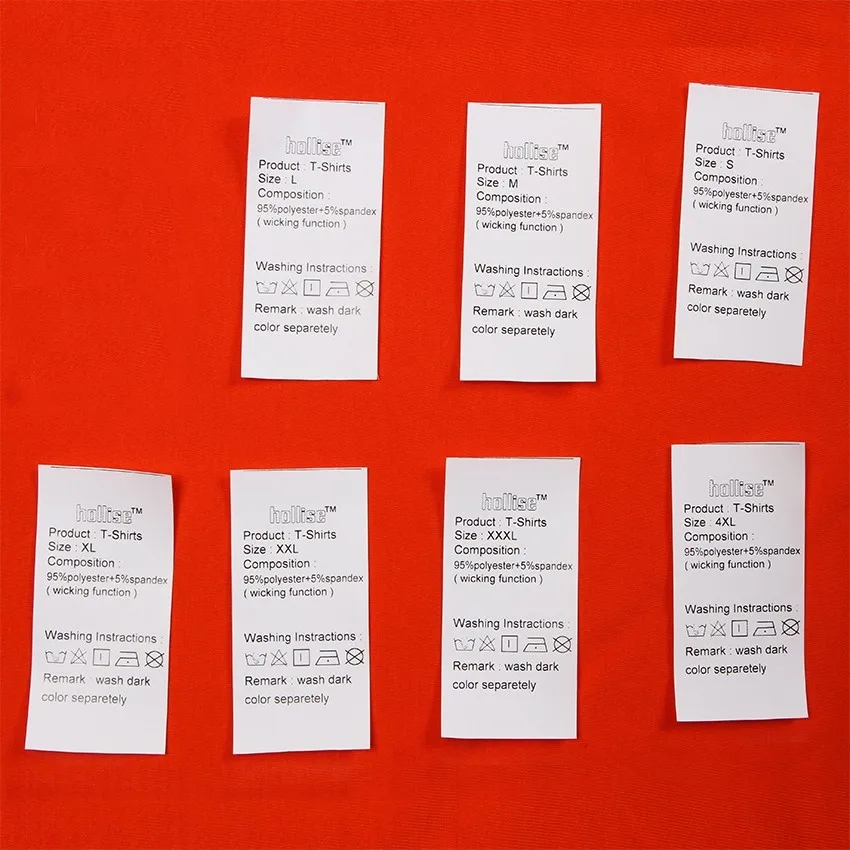 hollise™
Product : T-Shirts
Size : L
Composition :
95%polyester+5%spandex
( wicking function )
Washing Instractions :
Remark : wash dark
color separetely
hollise™
Product : T-Shirts
Size : M
Composition :
95%polyester+5%spandex
( wicking function )
Washing Instractions :
Remark : wash dark
color separetely
hollise™
Product : T-Shirts
Size : S
Composition :
95%polyester+5%spandex
( wicking function )
Washing Instractions :
Remark : wash dark
color separetely
hollise™
Product : T-Shirts
Size : XL
Composition :
95%polyester+5%spandex
( wicking function )
Washing Instractions :
Remark : wash dark
color separetely
hollise™
Product : T-Shirts
Size : XXL
Composition :
95%polyester+5%spandex
( wicking function )
Washing Instractions :
Remark : wash dark
color separetely
hollise™
Product : T-Shirts
Size : XXXL
Composition :
95%polyester+5%spandex
( wicking function )
Washing Instractions :
Remark : wash dark
color separetely
hollise™
Product : T-Shirts
Size : 4XL
Composition :
95%polyester+5%spandex
( wicking function )
Washing Instractions :
Remark : wash dark
color separetely